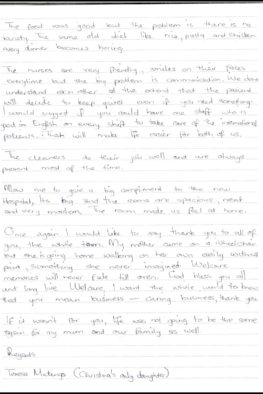 The food was good but the problem is there is no
variety. The same old diet like rice, patty and chicken
every dinner becomes boring.
The nurses are very friendly, smiles on their faces
everytime but the big problem is communication. We dont
understand each other to the extent that the present
will decide to keep quiet even if you need something.
I would suggest if you should have one staff who is
good in English on every shift to take care of the international
patients. That will make life easier for both of us.
The cleaners do their job well and are always
present most of the time.
Allow me to give a big compliment to the new
Hospital, its big and the rooms are spacious, neat
and very modern. The room made us feel at home.
Once again I would like to say thank you to all of
you, the whole team. My mother came on a wheelchair
but she is going home walking on her own easily without
pain, something she never imagined.
memories will never fade till even. God bless you all
and long live. I want the whole world to know
that you mean business - caring business, thank you
If it wasn't for you, life was not going to be the same
again for my mum and our family as well
Regards
Teresa (Christina's only daughter)